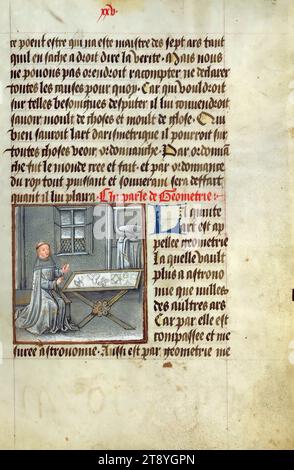 xxv
ce poent estre qui na este maistre des sept ars tant
quil en sache a droit dire la verite · Mais nous
ne pouons pas orendroit racompter ne declarer
toutes les causes pour quoy · Car qui vouldroit
sur telles besoingnes desputer · il lui conuendroit
sauoir moult de choses et moult de glose · Qui
bien sauroit lart darismetrique il pourroit sur
toutes choses veoir ordonnance · Par ordonnan
che fut le monde cree et fait · et par ordonnance
du roy tout puissant et souuerain sera deffait
quant il lui plaira · Chi parle de Geometrie ·
La quinte
art est ap
pellee geometrie
La quelle vault
plus a astrono
mie que nulles
des aultres ars
Car par elle est
compassee et me
suree astronomie · Aussi est par geometrie me
alamy
Image ID: 2T8YGPN
www.alamy.com